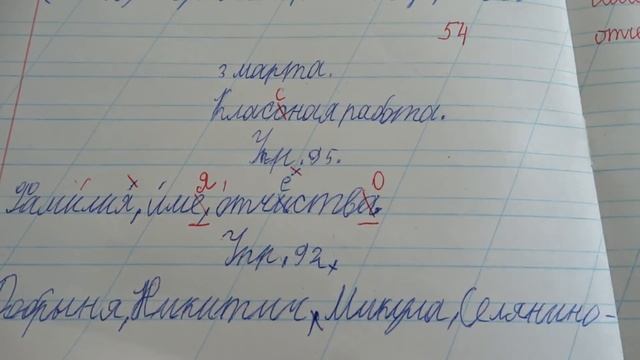 54
3 марта.
Классная работа.
Упр. 95.
Фамилия, име, отчиства.
Упр. 92.
Добрыня, Никитич, Микула, Селянино-